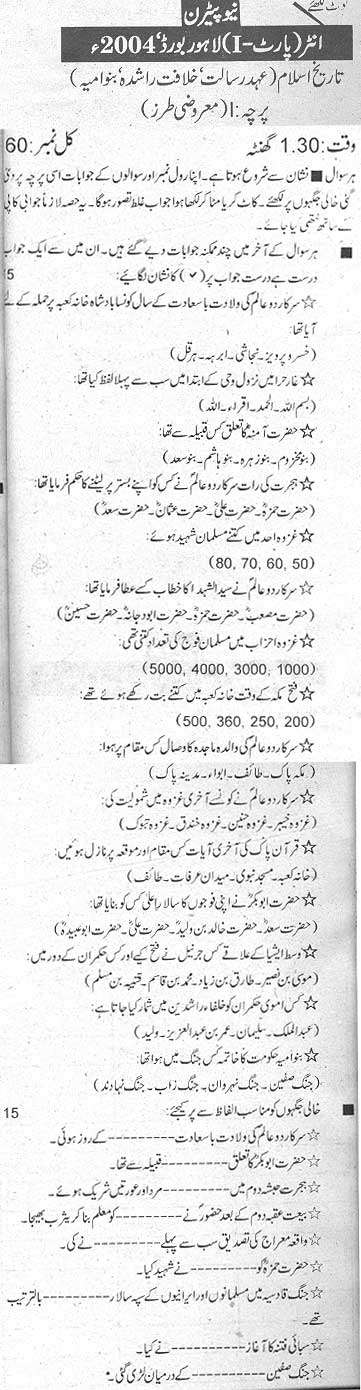 نوٹ لکھئے
نیو پیٹرن
انٹر (پارٹ-I) لاہور بورڈ، 2004ء
تاریخ اسلام (عہد رسالت، خلافت راشدہ، بنوامیہ)
پرچہ: I (معروضی طرز)
وقت: 1.30 گھنٹہ کل نمبر: 60
ہر سوال ■ نشان سے شروع ہوتا ہے۔ اپنا رول نمبر اور سوالوں کے جوابات اسی پرچہ پر دی
گئی خالی جگہوں پر لکھئے۔ کاٹ کر یا مٹا کر لکھا ہوا جواب غلط تصور ہوگا۔ یہ حصہ لازماً جوابی کاپی
کے ساتھ نتھی کیا جائے۔
■ ہر سوال کے آخر میں چند ممکنہ جوابات دیے گئے ہیں۔ ان میں سے ایک جواب
درست ہے درست جواب پر (✓) کا نشان لگائیے: 15
☆ سرکار دو عالمؐ کی ولادت باسعادت کے سال کونسا بادشاہ خانہ کعبہ پر حملہ کے لئے
آیا تھا:
(خسرو پرویز۔ نجاشی۔ ابرہہ۔ ہرقل)
☆ غار حرا میں نزول وحی کے ابتدا میں سب سے پہلا لفظ کیا تھا:
(بسم اللہ۔ الحمد۔ اقراء۔ اللہ)
☆ حضرت آمنہؓ کا تعلق کس قبیلہ سے تھا:
(بنو مخزوم۔ بنو زہرہ۔ بنو ہاشم۔ بنو سعد)
☆ ہجرت کی رات سرکار دو عالمؐ نے کس کو اپنے بستر پر لیٹنے کا حکم فرمایا تھا:
(حضرت حمزہؓ۔ حضرت علیؓ۔ حضرت عثمانؓ۔ حضرت سعدؓ)
☆ غزوہ احد میں کتنے مسلمان شہید ہوئے:
(80, 70, 60, 50)
☆ سرکار دو عالمؐ نے سید الشہدا کا خطاب کسے عطا فرمایا تھا:
(حضرت مصعبؓ۔ حضرت حمزہؓ۔ حضرت ابودجانہؓ۔ حضرت حسینؓ)
☆ غزوہ احزاب میں مسلمان فوج کی تعداد کتنی تھی:
(5000, 4000, 3000, 1000)
☆ فتح مکہ کے وقت خانہ کعبہ میں کتنے بت رکھے ہوئے تھے:
(500, 360, 250, 200)
☆ سرکار دو عالمؐ کی والدہ ماجدہ کا وصال کس مقام پر ہوا:
(مکہ پاک۔ طائف۔ ابواء۔ مدینہ پاک)
☆ سرکار دو عالمؐ نے کونسے آخری غزوہ میں شمولیت کی:
(غزوہ خیبر۔ غزوہ حنین۔ غزوہ خندق۔ غزوہ تبوک)
☆ قرآن پاک کی آخری آیات کس مقام اور موقعہ پر نازل ہوئیں:
(خانہ کعبہ۔ مسجد نبوی۔ میدان عرفات۔ طائف)
☆ حضرت ابوبکرؓ نے اپنی فوجوں کا سالار اعلیٰ کس کو بنایا تھا:
(حضرت سعدؓ۔ حضرت خالد بن ولیدؓ۔ حضرت علیؓ۔ حضرت ابوعبیدہؓ)
☆ وسط ایشیا کے علاقے کس جرنیل نے فتح کیے اور کس حکمران کے دور میں:
(موسیٰ بن نصیر۔ طارق بن زیاد۔ محمد بن قاسم۔ قتیبہ بن مسلم)
☆ کس اموی حکمران کو خلفاء راشدین میں شمار کیا جاتا ہے:
(عبدالملک۔ سلیمان۔ عمر بن عبدالعزیز۔ ولید)
☆ بنوامیہ حکومت کا خاتمہ کس جنگ میں ہوا تھا:
(جنگ صفین۔ جنگ نہروان۔ جنگ زاب۔ جنگ نہاوند)
■ خالی جگہوں کو مناسب الفاظ سے پر کیجئے: 15
☆ سرکار دو عالمؐ کی ولادت باسعادت ---------- کے روز ہوئی۔
☆ حضرت ابوبکرؓ کا تعلق ---------- قبیلہ سے تھا۔
☆ ہجرت حبشہ دوم میں ---------- مرد اور عورتیں شریک ہوئے۔
☆ بیعت عقبہ دوم کے بعد حضورؐ نے ---------- کو معلم بنا کر یثرب بھیجا۔
☆ واقعہ معراج کی تصدیق سب سے پہلے ---------- نے کی۔
☆ حضرت حمزہؓ کو ---------- نے شہید کیا۔
☆ جنگ قادسیہ میں مسلمانوں اور ایرانیوں کے سپہ سالار ---------- بالترتیب
تھے۔
☆ سبائی فتنہ کا آغاز ---------- نے کیا۔
☆ جنگ صفین ---------- کے درمیان لڑی گئی۔